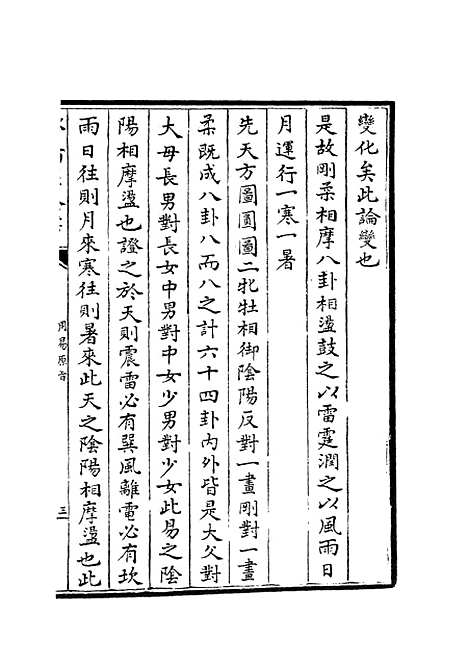 變化矣此論變也
是故剛柔相摩八卦相盪鼓之以雷霆潤之以風雨日
月運行一寒一暑
先天方圖圓圖二牝牡相御陰陽反對一畫剛對一畫
柔既成八卦八而八之計六十四卦內外皆是大父對
大母長男對長女中男對中女少男對少女此易之陰
陽相摩盪也證之於天則震雷必有巽風離電必有坎
雨日往則月來寒往則暑來此天之陰陽相摩盪也此
周易原旨
三